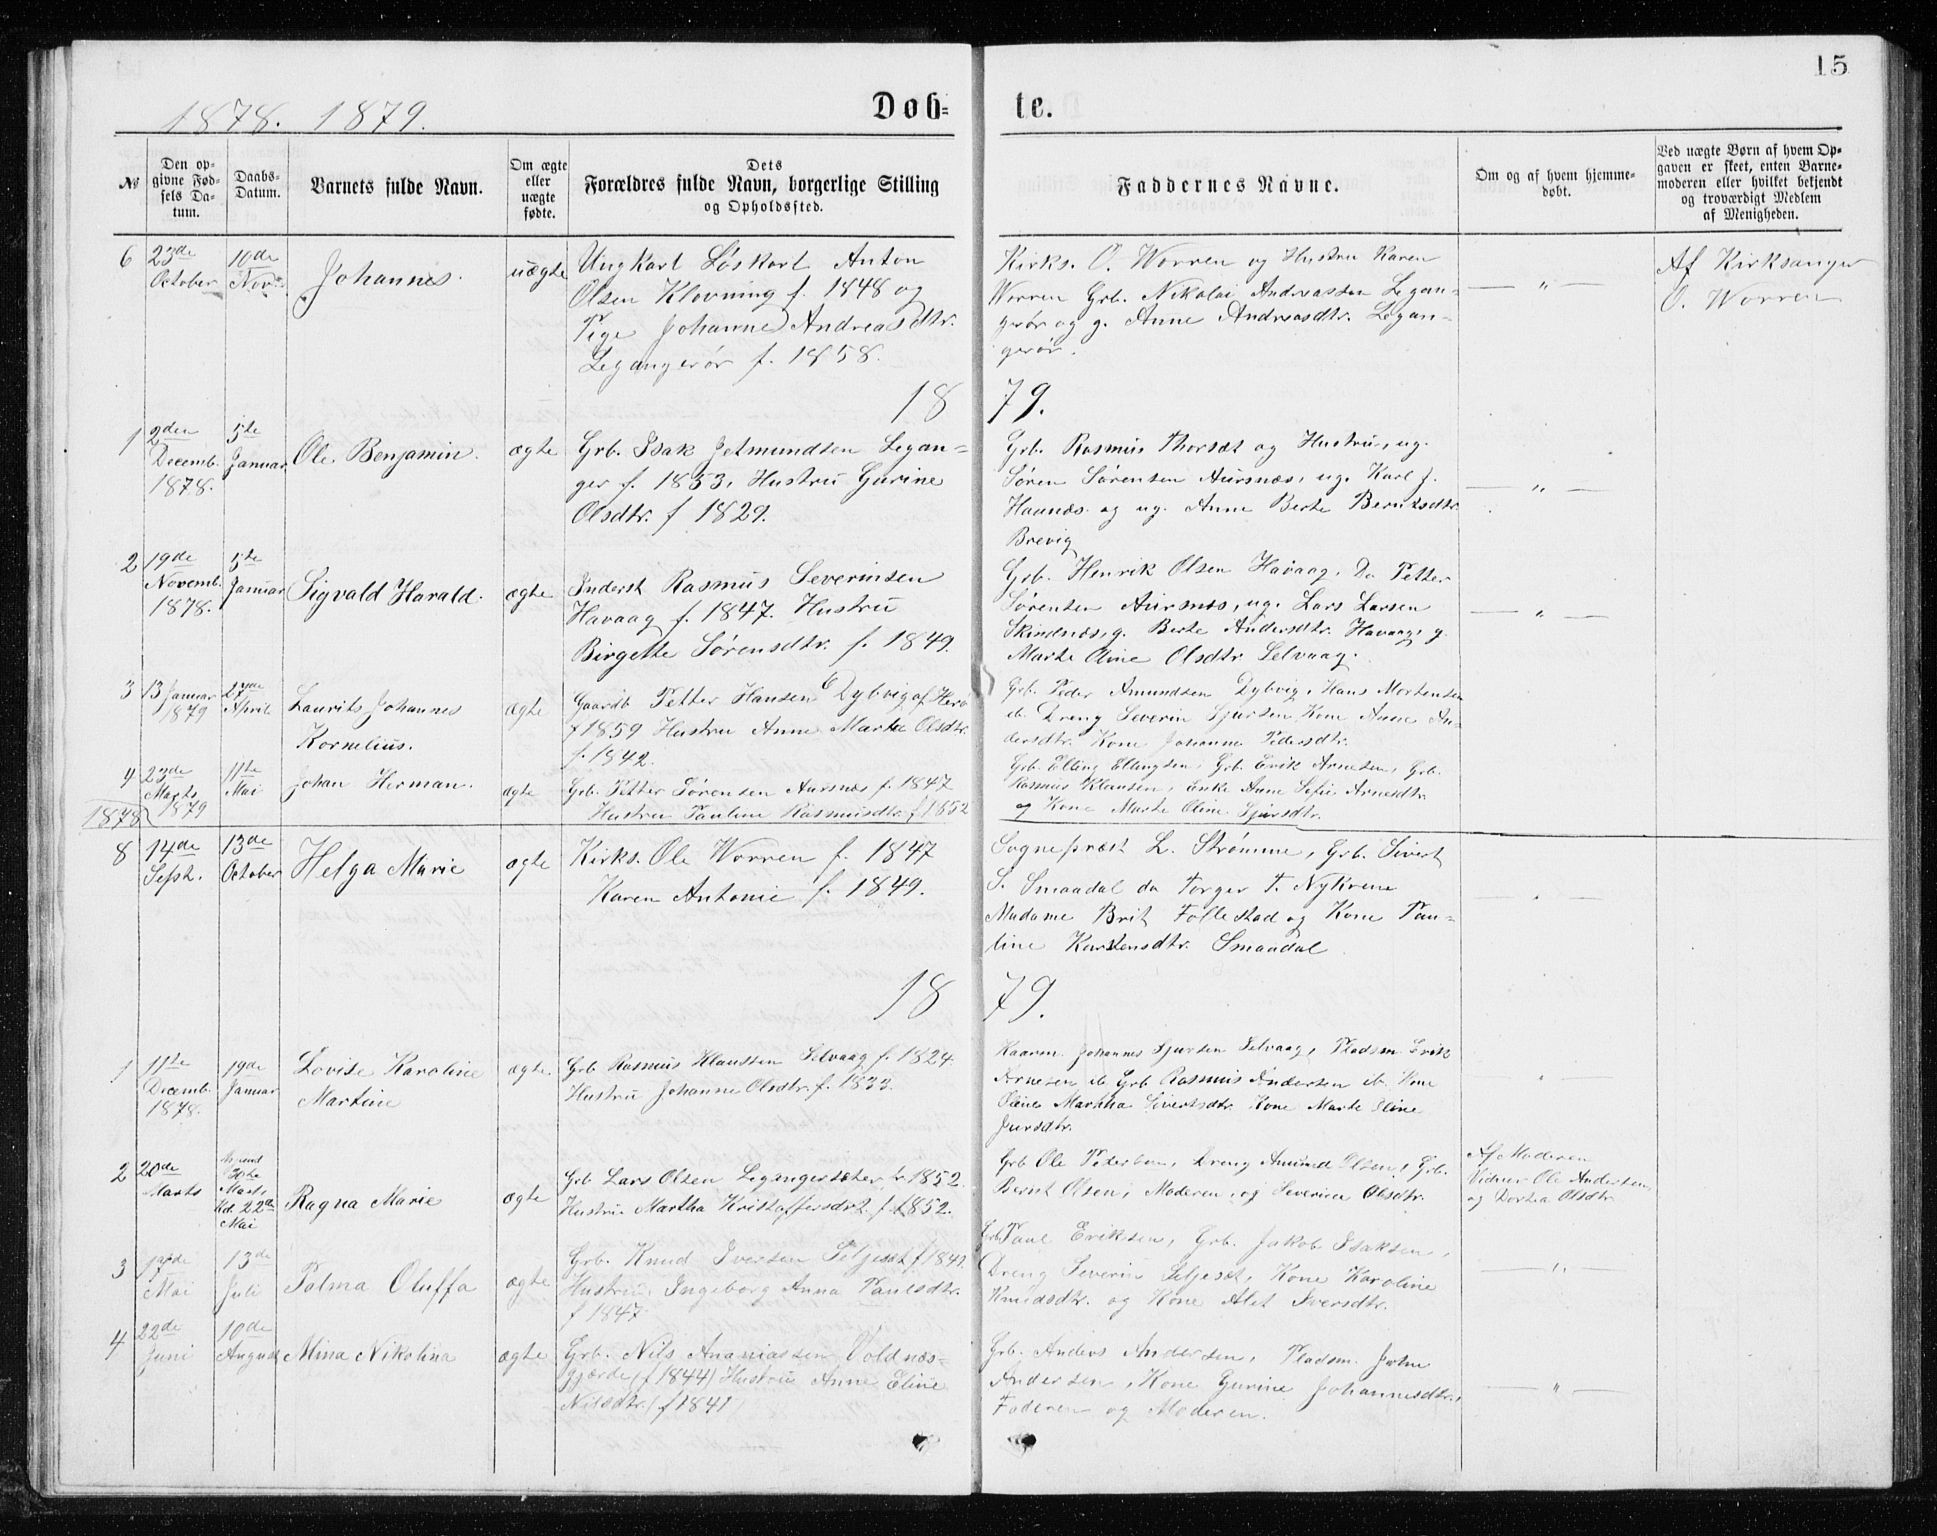 15
1878. 1879.
Döb= te.
№
Den op-
givne Fød-
sels Da-
tum.
Daabs-
Datum.
Barnets fulde Navn.
Om ægte
eller
uægte
fødte.
Dets
Forældres fulde Navn, borgerlige Stilling
og Opholdssted.
Faddernes Navne.
Om og af hvem hjemme-
døbt.
Ved uægte Børn af hvem Op-
gaven er skeet, enten Barne-
moderen eller hvilket bekjendt
og troværdigt Medlem
af Menigheden.
6
23de
October
10de
Nov.
Johannes.
uægte
Ungkarl Löskarl Anton
Olsen Klovning f. 1848 og
Pige Johanne Andreasdtr.
Legangerør f. 1858.
Kirks. O. Worren og Hustru Karen
Worren Grb. Nikolai Andreassen Legan-
gerør og g. Anne Andreasdtr. Legan-
gerør.
— " —
Af Kirksanger
O. Worren
18 79.
1
2den
Decemb.
1878.
5te
Januar
Ole Benjamin.
ægte
Grb. Isak Jetmundsen Legan=
ger f. 1833, Hustru Gurine
Olsdtr. f 1829.
Grb. Rasmus Thorsæt og Hustru, ug.
Søren Sørensen Aursnæs, ug. Karl J.
Haanæs og ug. Anne Berte Berntsdtr
Brevig
— " —
2
19de
Novemb.
1878.
5te
Januar
Sigvald Harald.
ægte
Inderst Rasmus Severinsen
Havaag f. 1847. Hustru
Birgette Sørensdtr. f. 1849.
Grb. Henrik Olsen Havaag, Do Petter
Sørensen Aursnæs, ug. Lars Larsen
Skindnæs, g. Berte Andersdtr. Havaag, g.
Marte Oline Olsdtr Selvaag.
— " —
3
13 Januar
1879
27de
April
Laurits Johannes
Kornelius.
ægte
Gaardb Petter Hansen Dybvig af Herø
f 1859 Hustru Anne Marta Olsdtr.
f. 1842.
Grb. Peder Amundsen Dybvig, Hans Mortensen
ib. Dreng Severin Sjursen, Kone Anne An-
dersdtr. Kone Johanne Pedersdtr.
4
23de
Marts
1879
11te
Mai
Johan Herman.
ægte
Grb. Petter Sørensen Aursnæs f. 1847
Hustru Pauline Rasmusdtr. f 1852
Grb. Elling Ellingsen, Grb. Erik Arnesen, Grb.
Rasmus Klausen, Enke Anne Sofie Arnesdtr.
og Kone Marte Oline Sjursdtr.
1878
8
14de
Sept.
13de
October
Helga Marie
ægte
Kirks. Ole Worren f. 1847
Karen Antonie f. 1849.
Sogneprest L. Strømme, Grb. Sivert
S. Smaadal do Torger T. Nykrene
Madame Brit Follestad og Kone Pau-
line Karstensdtr. Smaadal
18 79.
1
11te
Decemb.
1878.
19de
Januar
Lovise Karoline
Martine
ægte.
Grb Rasmus Klaussen Selvaag f. 1824
Hustru Johanne Olsdtr. f. 1833.
Kaarm. Johannes Sjursen Selvaag, Pladsm. Erik
Arnesen ib. Grb Rasmus Andersen ib. Kone
Oline Martha Sivertsdtr. Kone Marte Oline
Jursdtr.
2
20de
Marts
30te
Marts
22de
Mai
Ragna Marie
ægte
Grb Lars Olsen Legangersæter f. 1852.
Hustru Martha Kristoffersdtr f. 1852.
Grb Ole Pedersen, Dreng Amund Olsen, Grb.
Bernt Olsen, Moderen, og Severine Olsdtr.
Af Moderen
Vidner Ole Andersen,
og Dortea Olsdtr
3
17de
Mai
13de
Juli
Palma Oluffa
ægte
Grb. Knud Iversen Seljeset f 1849.
Hustru Ingeborg Anna Paulsdtr.
f 1847
Grb Paul Eriksen, Grb. Jakob Isaksen,
Dreng Severin Seljeset, Kone Karoline
Knudsdtr. og Kone Alet Iversdtr.
— " —
4
22de
Juni
10de
August
Mina Nikolina
ægte
Grb. Nils Ananiassen Voldnæs=
gjerde (f 1844) Hustru Anne Eline
Nilsdtr. (f 1841)
Grb. Anders Andersen, Pladsm. John
Andersen, Kone Gurine Johannesdtr.,
Faderen og Moderen.
— " —